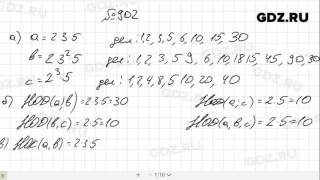 №902
GDZ.RU
а) a = 2·3·5 дел: 1,2,3,5,6,10,15,30
b = 2·3²·5 дел: 1,2,3,5 9, 6,10,18 15, 45, 90,30
c = 2³·5 дел: 1,2,4,8,5 10, 20, 40
б) НОД(a,b) = 2·3·5=30 НОД(a;c) = 2·5=10
НОД(b,c) = 2·5=10 НОД(a,b,c) = 2·5=10
в) НОК(a,b) = 2·3·5
1/10
GDZ.RU